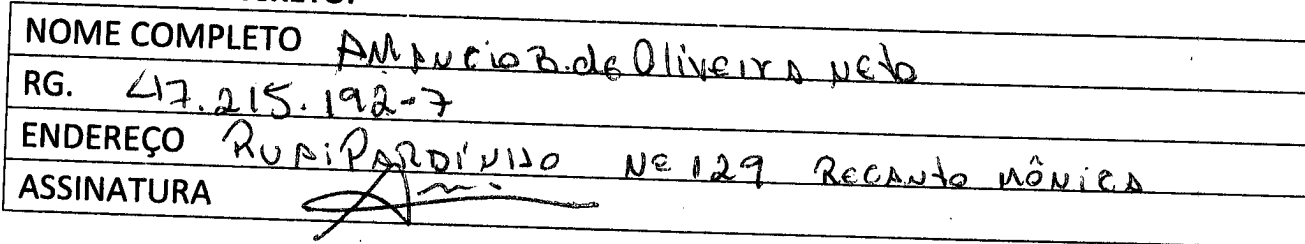 NOME COMPLETO AMANCIO B. de Oliveira Neto
RG. 47.215.192-7
ENDEREÇO RUA: PARDINHO Nº 129 RECANTO MÔNICA
ASSINATURA